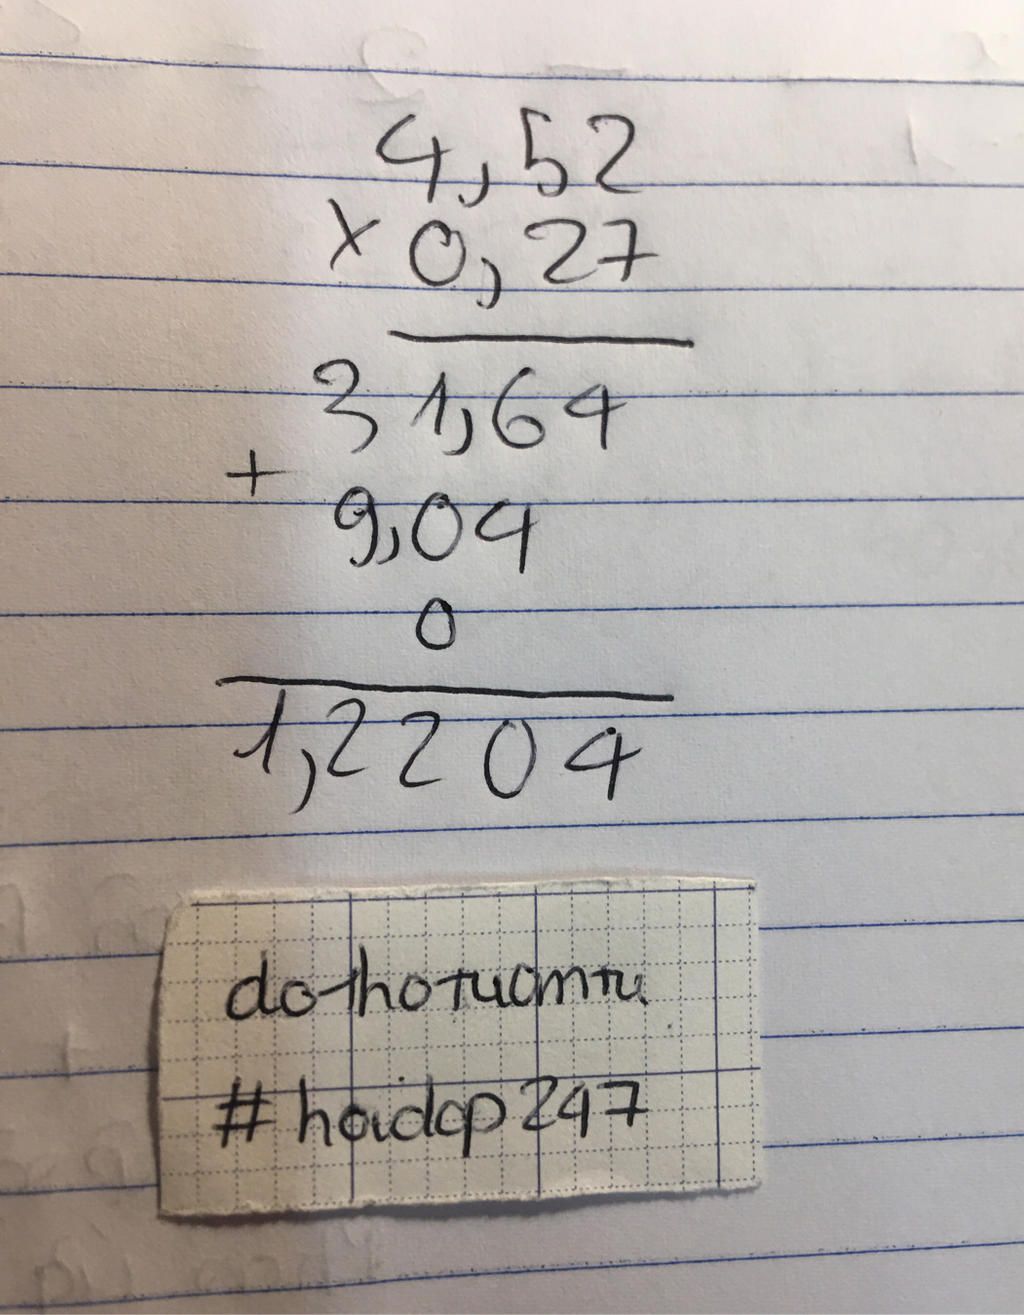 4,52
× 0,27
31,64
+
9,04
0
1,2204
dothotuantu.
#hoidap247